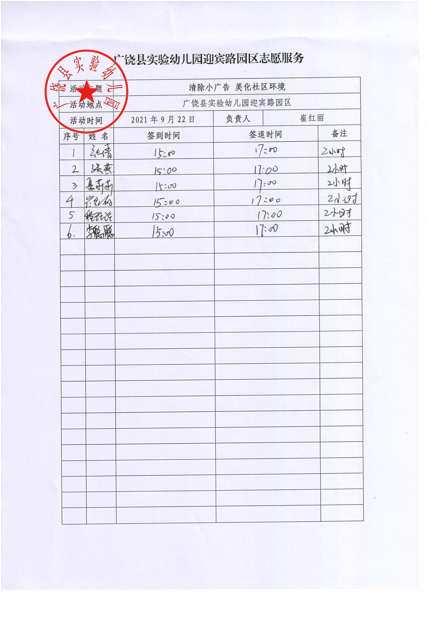 广饶县实验幼儿园迎宾路园区志愿服务
广饶县实验幼儿园
活动主题 清除小广告 美化社区环境
活动地点 广饶县实验幼儿园迎宾路园区
活动时间 2021年9月22日 负责人 崔红丽
序号 姓名 签到时间 签退时间 备注
1 15:00 17:00 2小时
2 15:00 17:00 2小时
3 15:00 17:00 2小时
4 15:00 17:00 2小时
5 15:00 17:00 2小时
6. 15:00 17:00 2小时